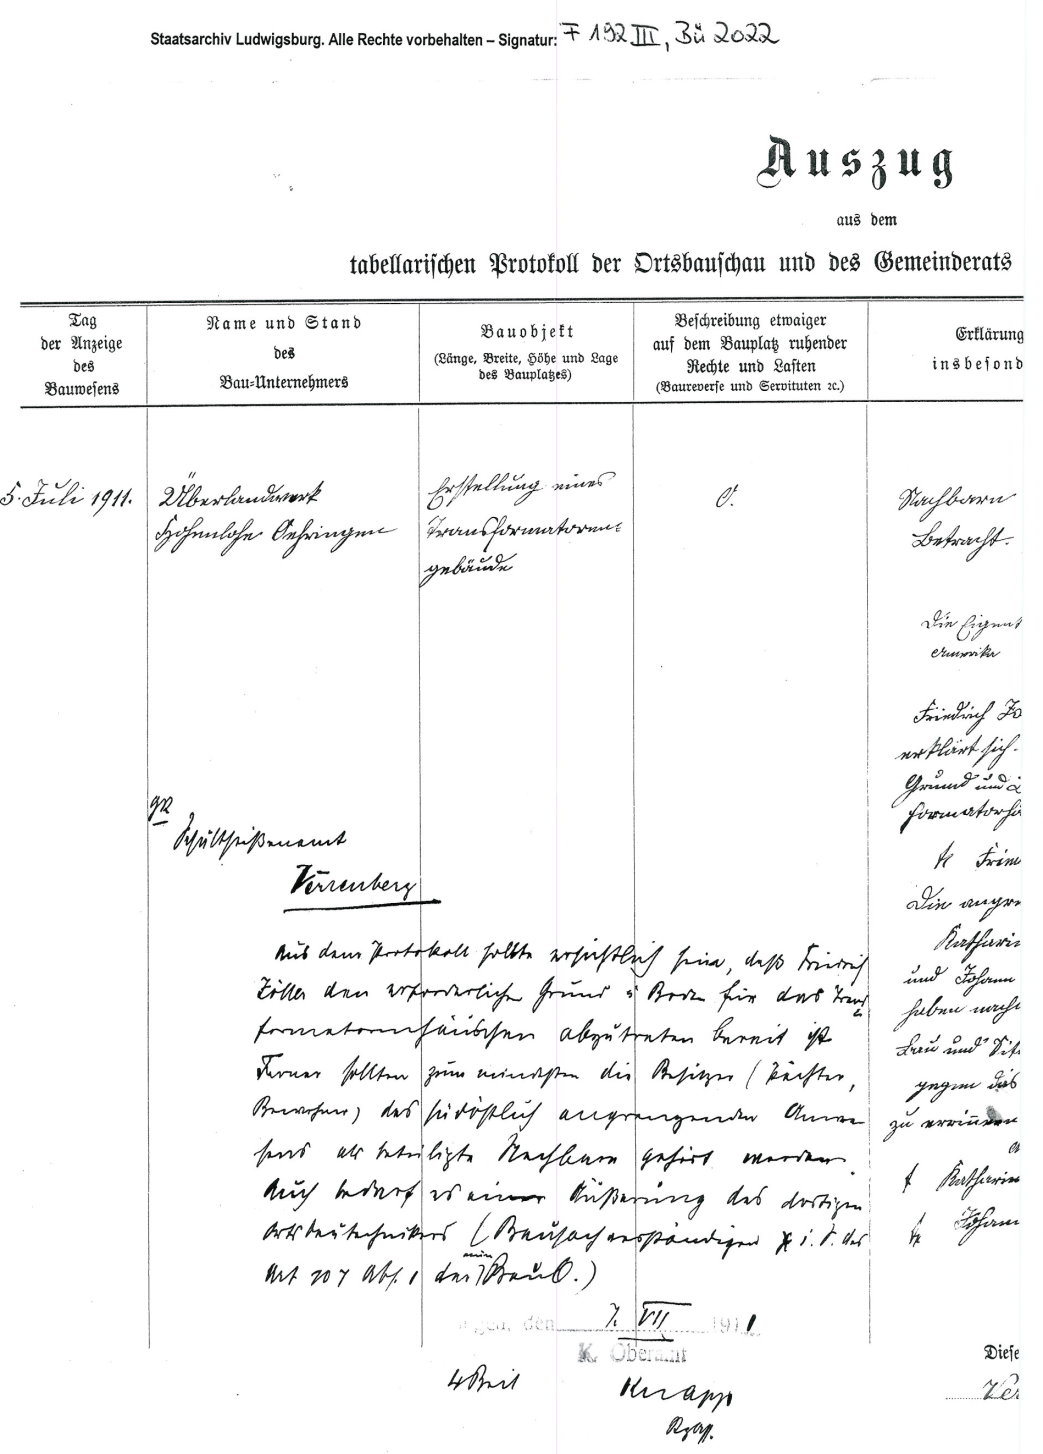 Staatsarchiv Ludwigsburg. Alle Rechte vorbehalten – Signatur: F 192 III, Bü 2022
Auszug
aus dem
tabellarischen Protokoll der Ortsbauschau und des Gemeinderats
Tag
der Anzeige
des
Bauwesens
Name und Stand
des
Bau-Unternehmers
Bauobjekt
(Länge, Breite, Höhe und Lage
des Bauplatzes)
Beschreibung etwaiger
auf dem Bauplatz ruhender
Rechte und Lasten
(Baureverse und Servituten ꝛc.)
Erklärung
insbesond
5. Juli 1911.
Überlandwerk
Hohenlohe Oehringen
Erstellung eines
Transformatoren-
gebäude
Nachbarn
Betracht.
Die Eigent
Amerika
Friedrich Zo
erklärt sich
Grund und
formatorhä
Die angre
Katharin
und Johann
haben nach
Bau und Sit
gegen das
zu erinnern
Katharin
Johann
Schultheißenamt
Verrenberg
Aus dem Protokoll sollte ersichtlich sein, daß Friedrich
Zoller den erforderlichen Grund u Boden für das Trans
formatorenhäuschen abzutreten bereit ist
Ferner sollten zum mindesten die Besitzer (Pächter,
Bewohner) des südöstlich angrenzenden Anwe
sens als beteiligte Nachbarn gehört werden.
Auch bedarf es einer Äußerung des dortigen
Ortsbautechnikers (Bausachverständigen i. S. des
Art 107 Abs. 1 der neuen BauO.)
ngen, den 7. VII 1911
K. Oberamt
4 Beil
Knapp
Diese
Ver